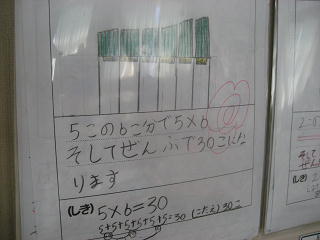 5この6こ分で5×6
そしてぜんぶで30こにな
ります
(しき) 5×6=30
5+5+5+5+5+5=30 (こたえ) 30こ